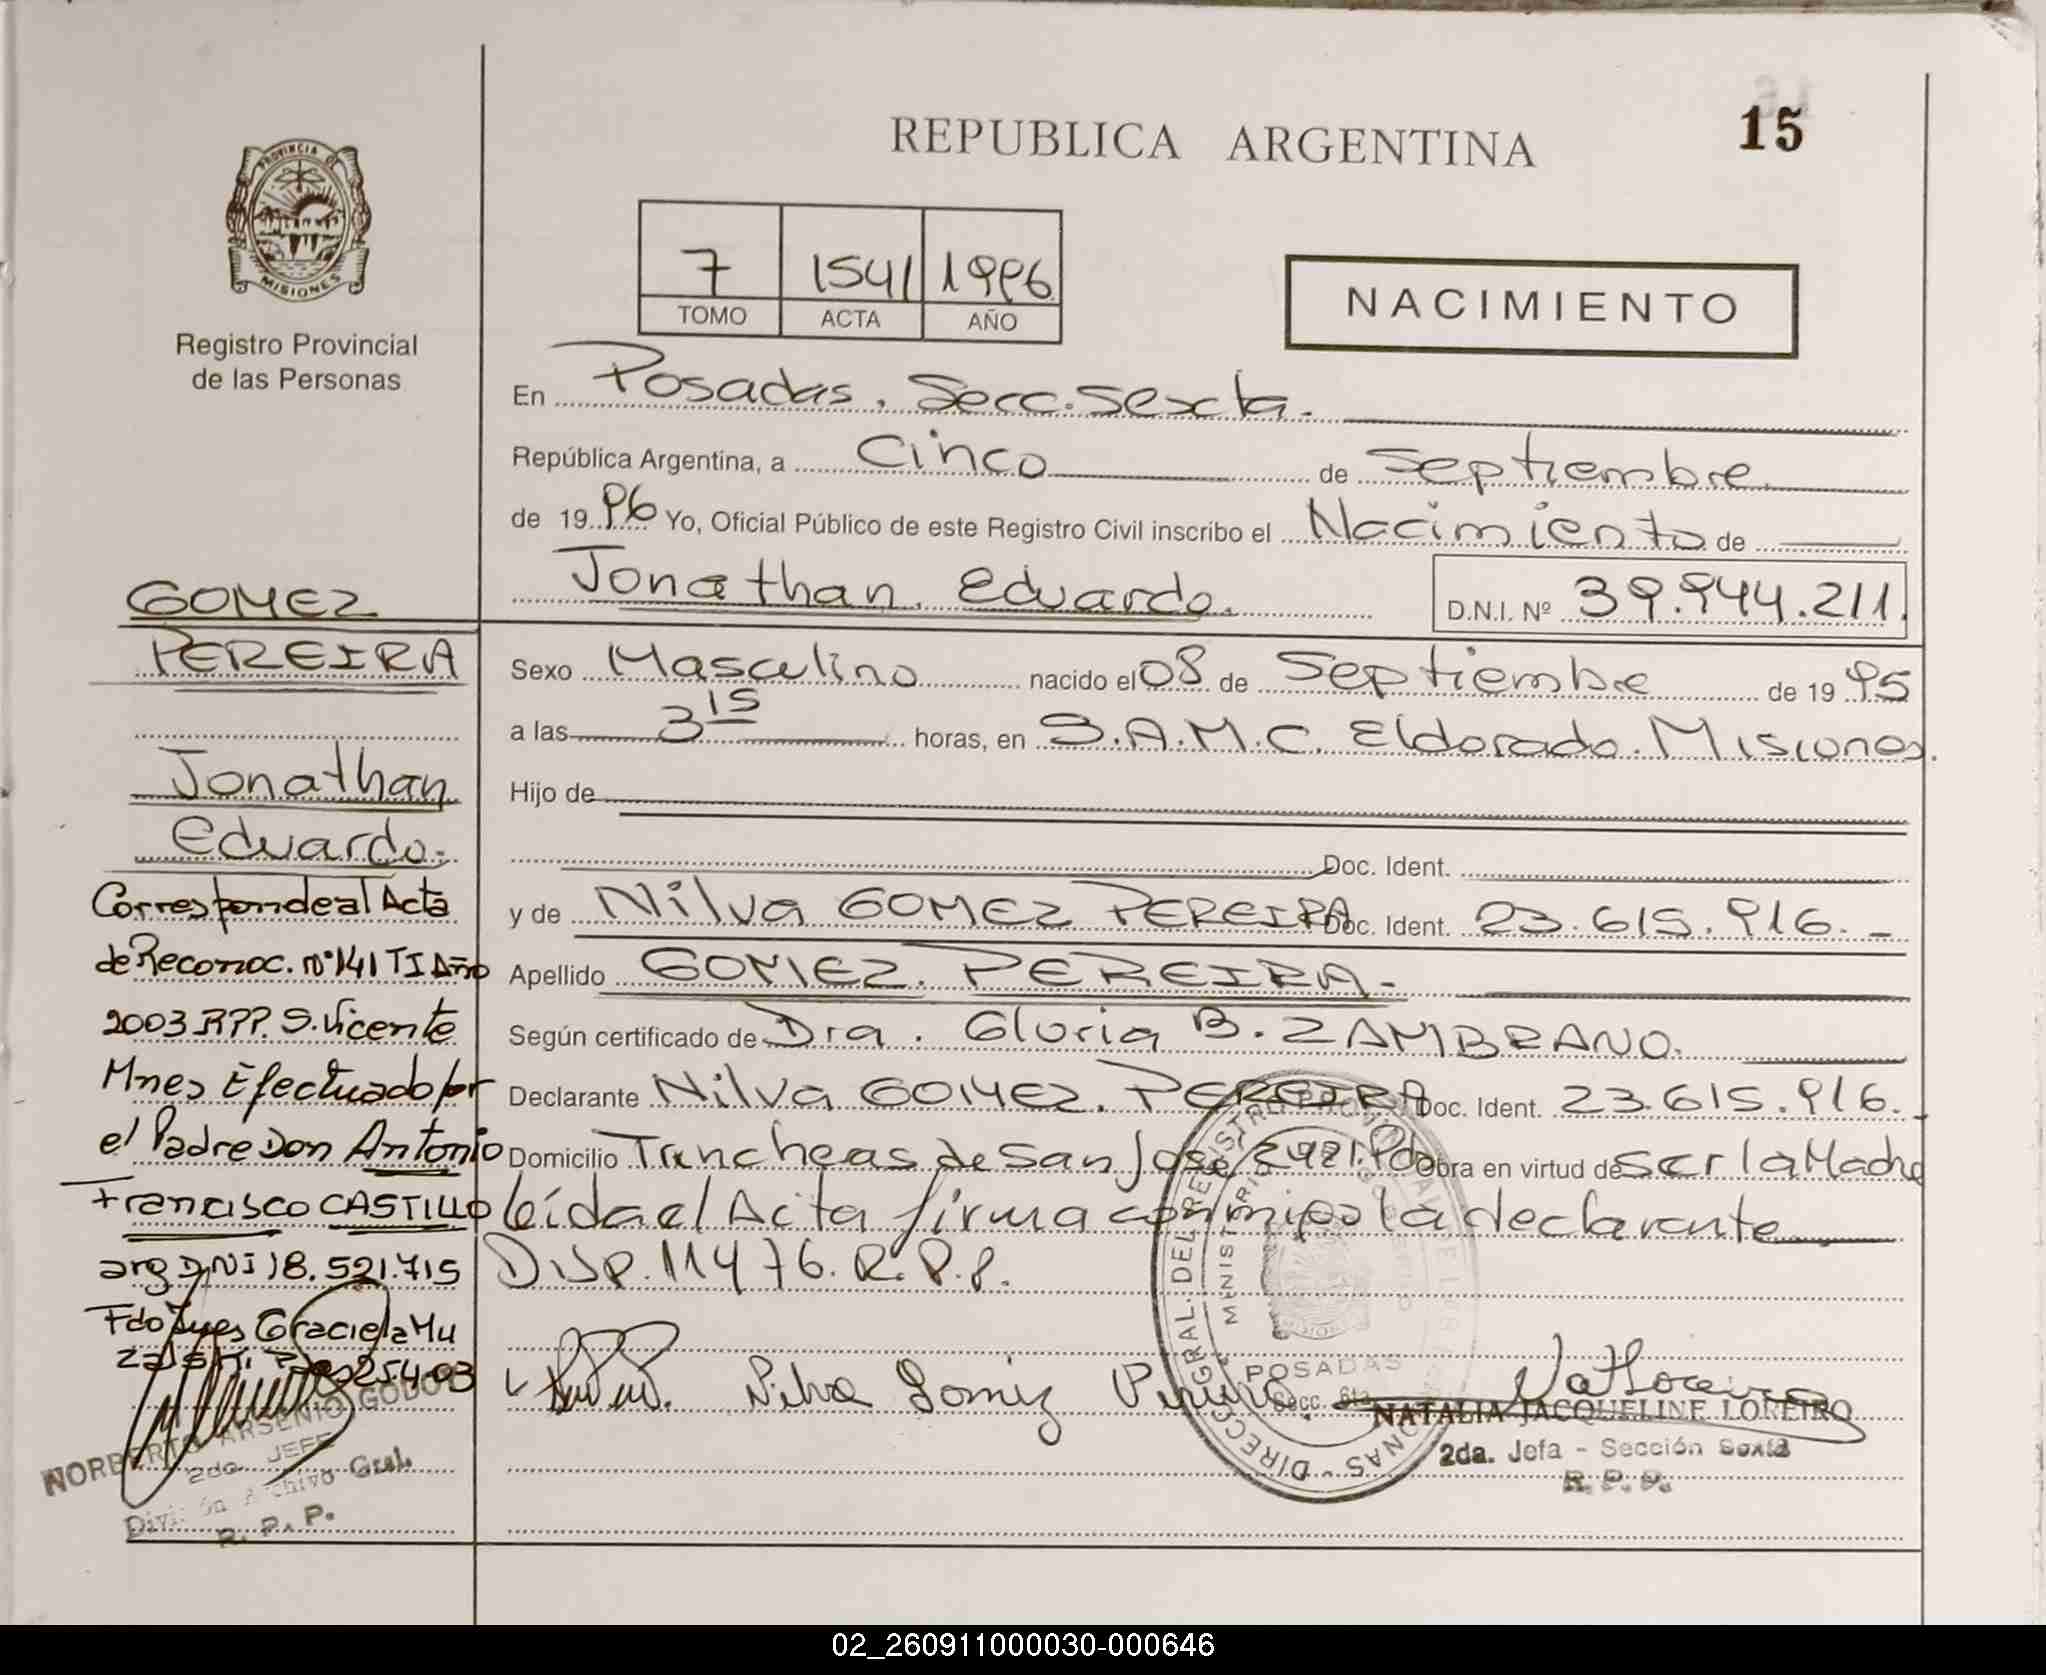 15
REPUBLICA ARGENTINA
PROVINCIA DE
MISIONES
Registro Provincial
de las Personas
7 1541 1996
TOMO ACTA AÑO
NACIMIENTO
En Posadas, Secc. Sexta.
República Argentina, a Cinco de Septiembre
de 1996 Yo, Oficial Público de este Registro Civil inscribo el Nacimiento de
Jonathan Eduardo. D.N.I. Nº 39.944.211.
Sexo Masculino nacido el 08 de Septiembre de 1995
a las 3 15 horas, en S.A.M.C. Eldorado. Misiones.
Hijo de
Doc. Ident.
y de Nilva GOMEZ PEREIRA Doc. Ident. 23.615.916. -
Apellido GOMEZ PEREIRA.-
Según certificado de Dra. Gloria B. ZAMBRANO.
Declarante Nilva GOMEZ PEREIRA Doc. Ident. 23.615.916.
Domicilio Trincheas de San José 2921. Pdas Obra en virtud de ser la Madre
leída el Acta firma conmigo la declarante
Disp. 114 76. R.P.P.
Nilva Gomez Pereira
NATALIA JACQUELINE LOREIRO
2da. Jefa - Sección Sexta
R. P. P.
POSADAS
Secc. 6ta
GOMEZ
PEREIRA
Jonathan
Eduardo.
Corresponde al Acta
de Reconoc. Nº 141 TI Año
2003 RPP. S. Vicente
Mnes Efectuado por
el Padre Don Antonio
Francisco CASTILLO
arg DNI 18.521.715
Fdo Ines Graciela Mu
25-4-03
NORBERTO ARSENIO GODOY
2do. JEFE
División Archivo Gral.
R. P. P.
02_260911000030-000646